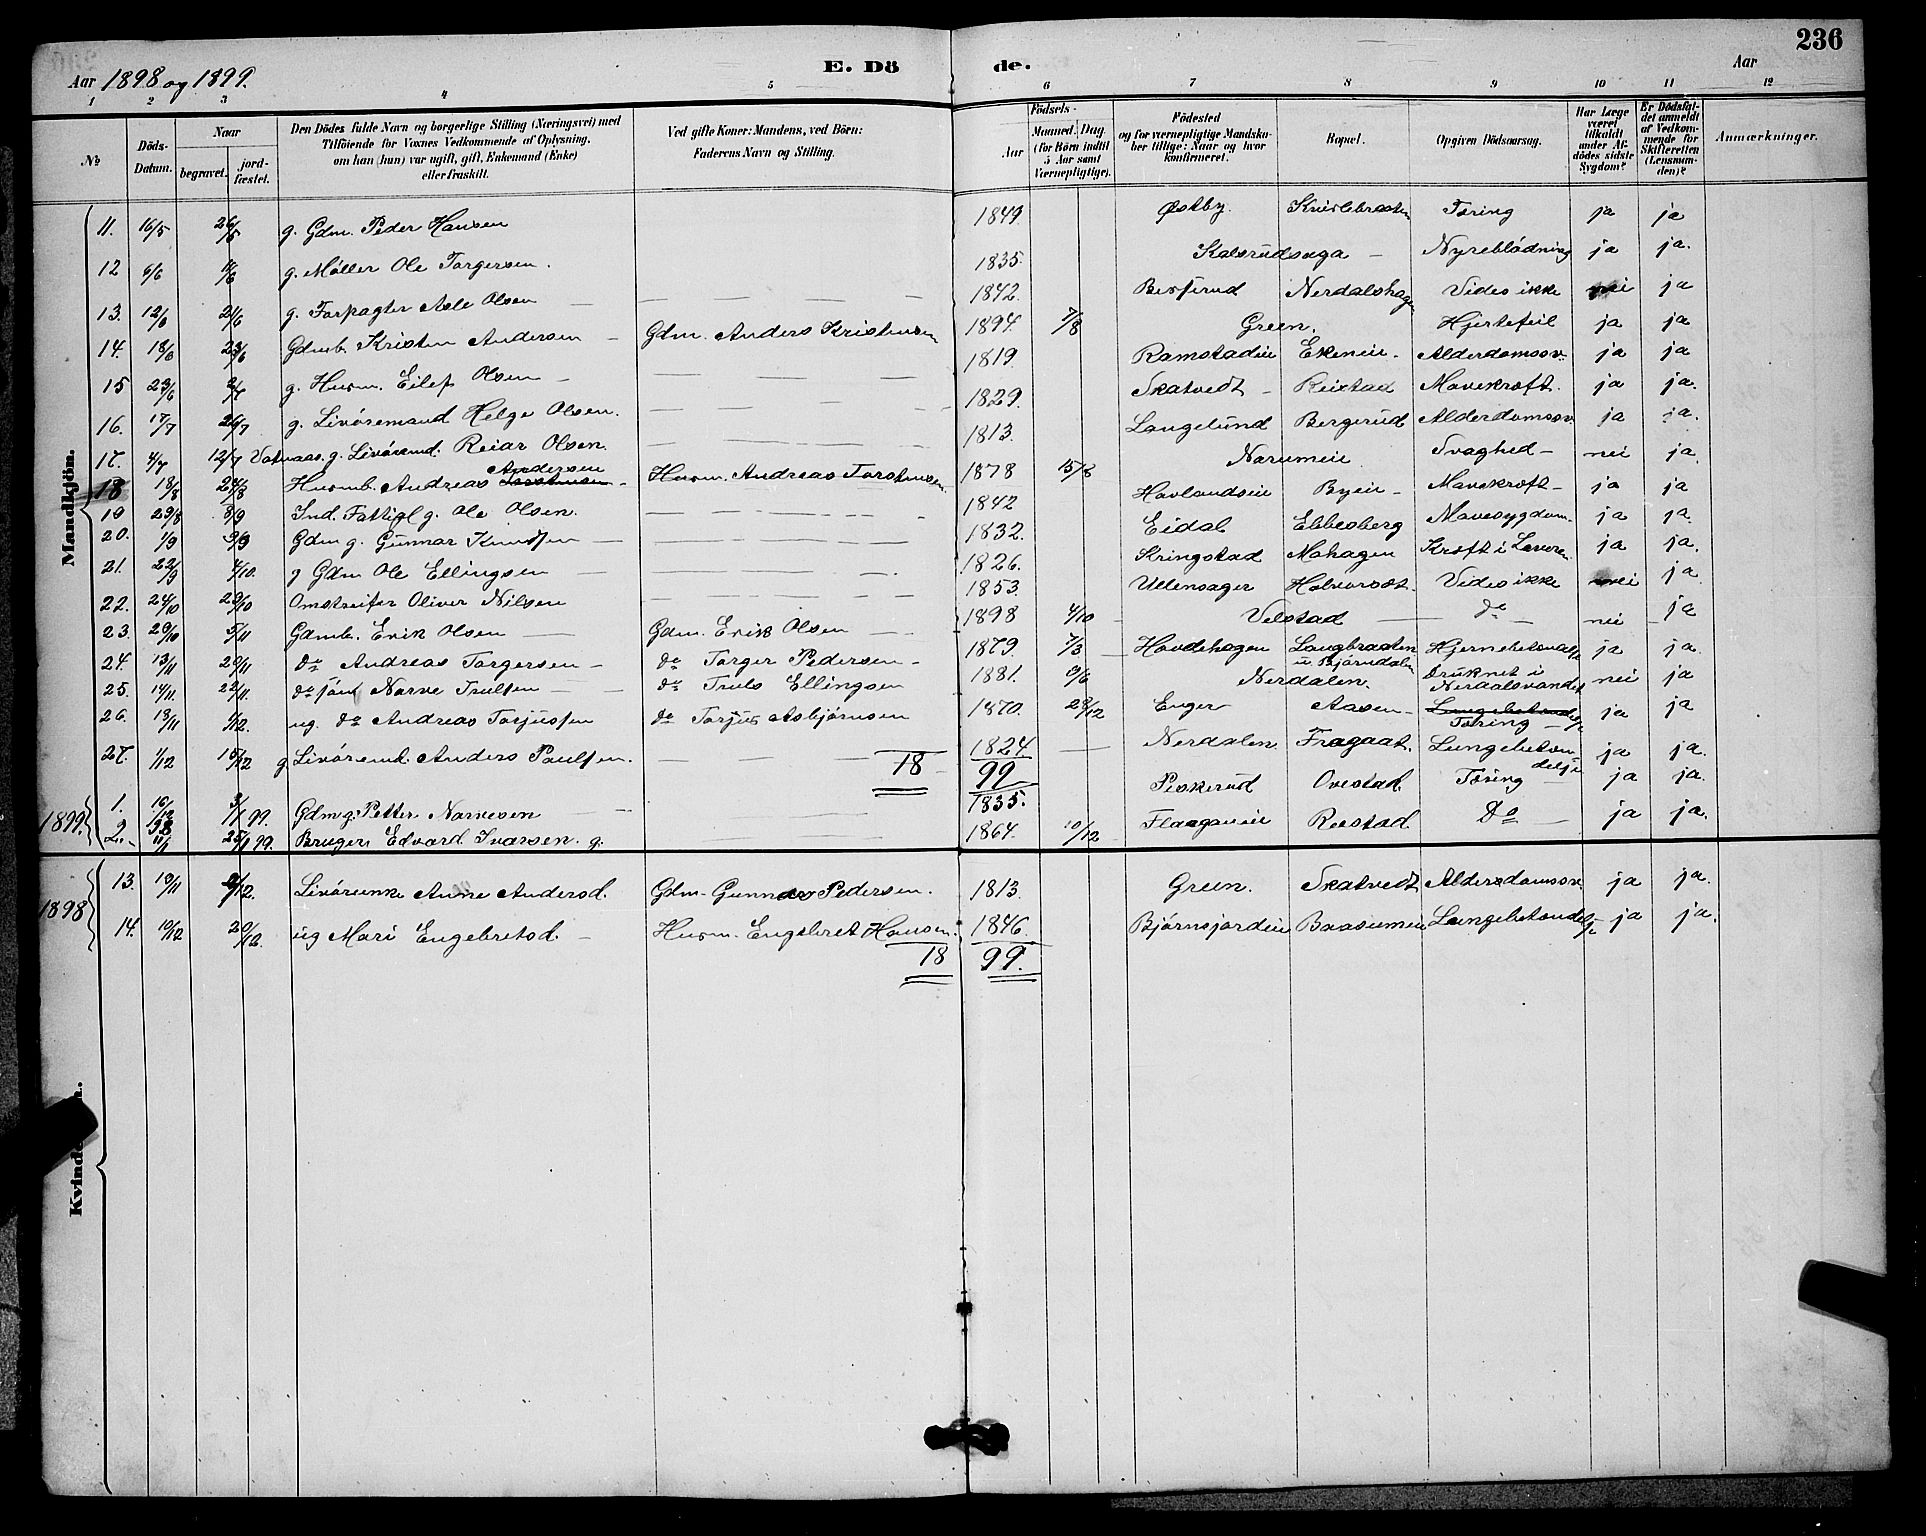 236
Aar 1898 og 1899. E. Dö de. Aar
1 2 3 4 5 6 7 8 9 10 11 12
№
Döds-Datum.
Naar
begravet.
jord-fæstet.
Den Dödes fulde Navn og borgerlige Stilling (Næringsvei) med
Tilföiende for Voxnes Vedkommende af Oplysning,
om han (hun) var ugift, gift, Enkemand (Enke)
eller fraskilt.
Ved gifte Koner: Mandens, ved Börn:
Faderens Navn og Stilling.
Födsels-
Aar
Maaned. Dag
(for Börn indtil
5 Aar samt
Værnepligtige).
Födested
og for værnepligtige Mandska-
ber tillige: Naar og hvor
konfirmeret.
Bopæl.
Opgiven Dödsaarsag.
Har Læge
været
tilkaldt
under Af-
dödes sidste
Sygdom?
Er Dödsfal-
det anmeldt
af Vedkom-
mende for
Skifteretten
(Lensman-
den)?
Anmærkninger.
Mandkjön.
11. 16/5 26/5 g. Gdm. Peder Hansen 1849. Østby. Knislebraaten Tæring ja ja
12 6/6 g. Möller Ole Torgersen. 1835. Kalsrudsaga — Nyreblödning ja ja.
13. 12/6 21/6 g. Forpagter Asle Olsen — 1842. Nerdalshagen Vides ikke nei ja
14. 18/6 23/6 Gdmb. Kristen Andersen — Gdm. Anders Kristensen 1894. 7/8 Green. Hjertefeil ja ja
15 23/6 g. Husm. Eilef Olsen — 1819. Ramstadeie Ekeneie. Alderdomssv. ja ja
16. 17/7 26/7 g. Livöremand Helge Olsen. 1829. Skatvedt — Reistad Mavekræft. ja ja.
17. 4/7 12/7 g. Livörem. Reiar Olsen. 1813. Langelund Bergerud Alderdomssv. ja ja.
18 18/8 24/8 Husmb. Andreas Andersen — Husm. Andreas Torstensen. 1878 15/8 Narumeie Svaghed — nei ja.
19 29/8 8/9 Ind. Fattigl. g. Ole Olsen. 1842 Havlandseie Byeie — Mavekræft — ja ja
20. 1/9 9/9 Gdm g. Gunnar Knudsen — 1832. Eidal Ebbesberg Mavesygdom. ja ja.
21. 22/9 4/10. g Gdm Ole Ellingsen 1826. Kringstad Mohagen Kræft i Leveren ja ja.
22. 24/10 29/10 Omstreifer Oliver Nilsen 1853. Ullensager Halvorsæt. Vides ikke nei ja.
23. 26/10 5/11 Gdmb. Erik Olsen — Gdm. Erik Olsen — 1898 4/10 Velstad — do — nei ja
24. 13/11 20/11 do Andreas Torgersen — do Torger Pedersen — 1879. 7/3 Hovdehagen Langbraaten u. Bjørndalen ja ja.
25. 14/11. 22/11. do Narve Trulsen — do Truls Ellingsen 1881. 9/6 Nerdalen. Druknet i Nerdalsvandet nei ja
26. 13/11 1/12. ug. do Andreas Torjussen do Torjus Asbjørnsen 1870. 28/12 Enger Aasen — Tæring — ja ja
27. 1/12 15/12 g. Livörem. Anders Paulsen. 18 1824. 99 Nerdalen Fragaat. Lungebetændelse ja ja.
1899. 1. 16/12 98 3/1 99. Gdm g. Petter Narvesen 1835. Piskerud Ovestad. Tæring ja ja.
2. 11/1 25/1 99. Bruger Edvard Ivarsen. g. 1864. 10/12 Flaaganeie Restad. Do — ja ja.
1898
13. 19/11 9/12. Livörenke Anne Andersd. Gdm. Gunnar Pedersen. 1813. Green. Skatvedt Alderdomssv. ja ja.
14. 10/12 20/12. ug Mari Engebretsd. — Husm. Engebret Hansen. 1846. Bjørnsjordeie Baasumeie Lungebetændelse ja ja.
18 99.